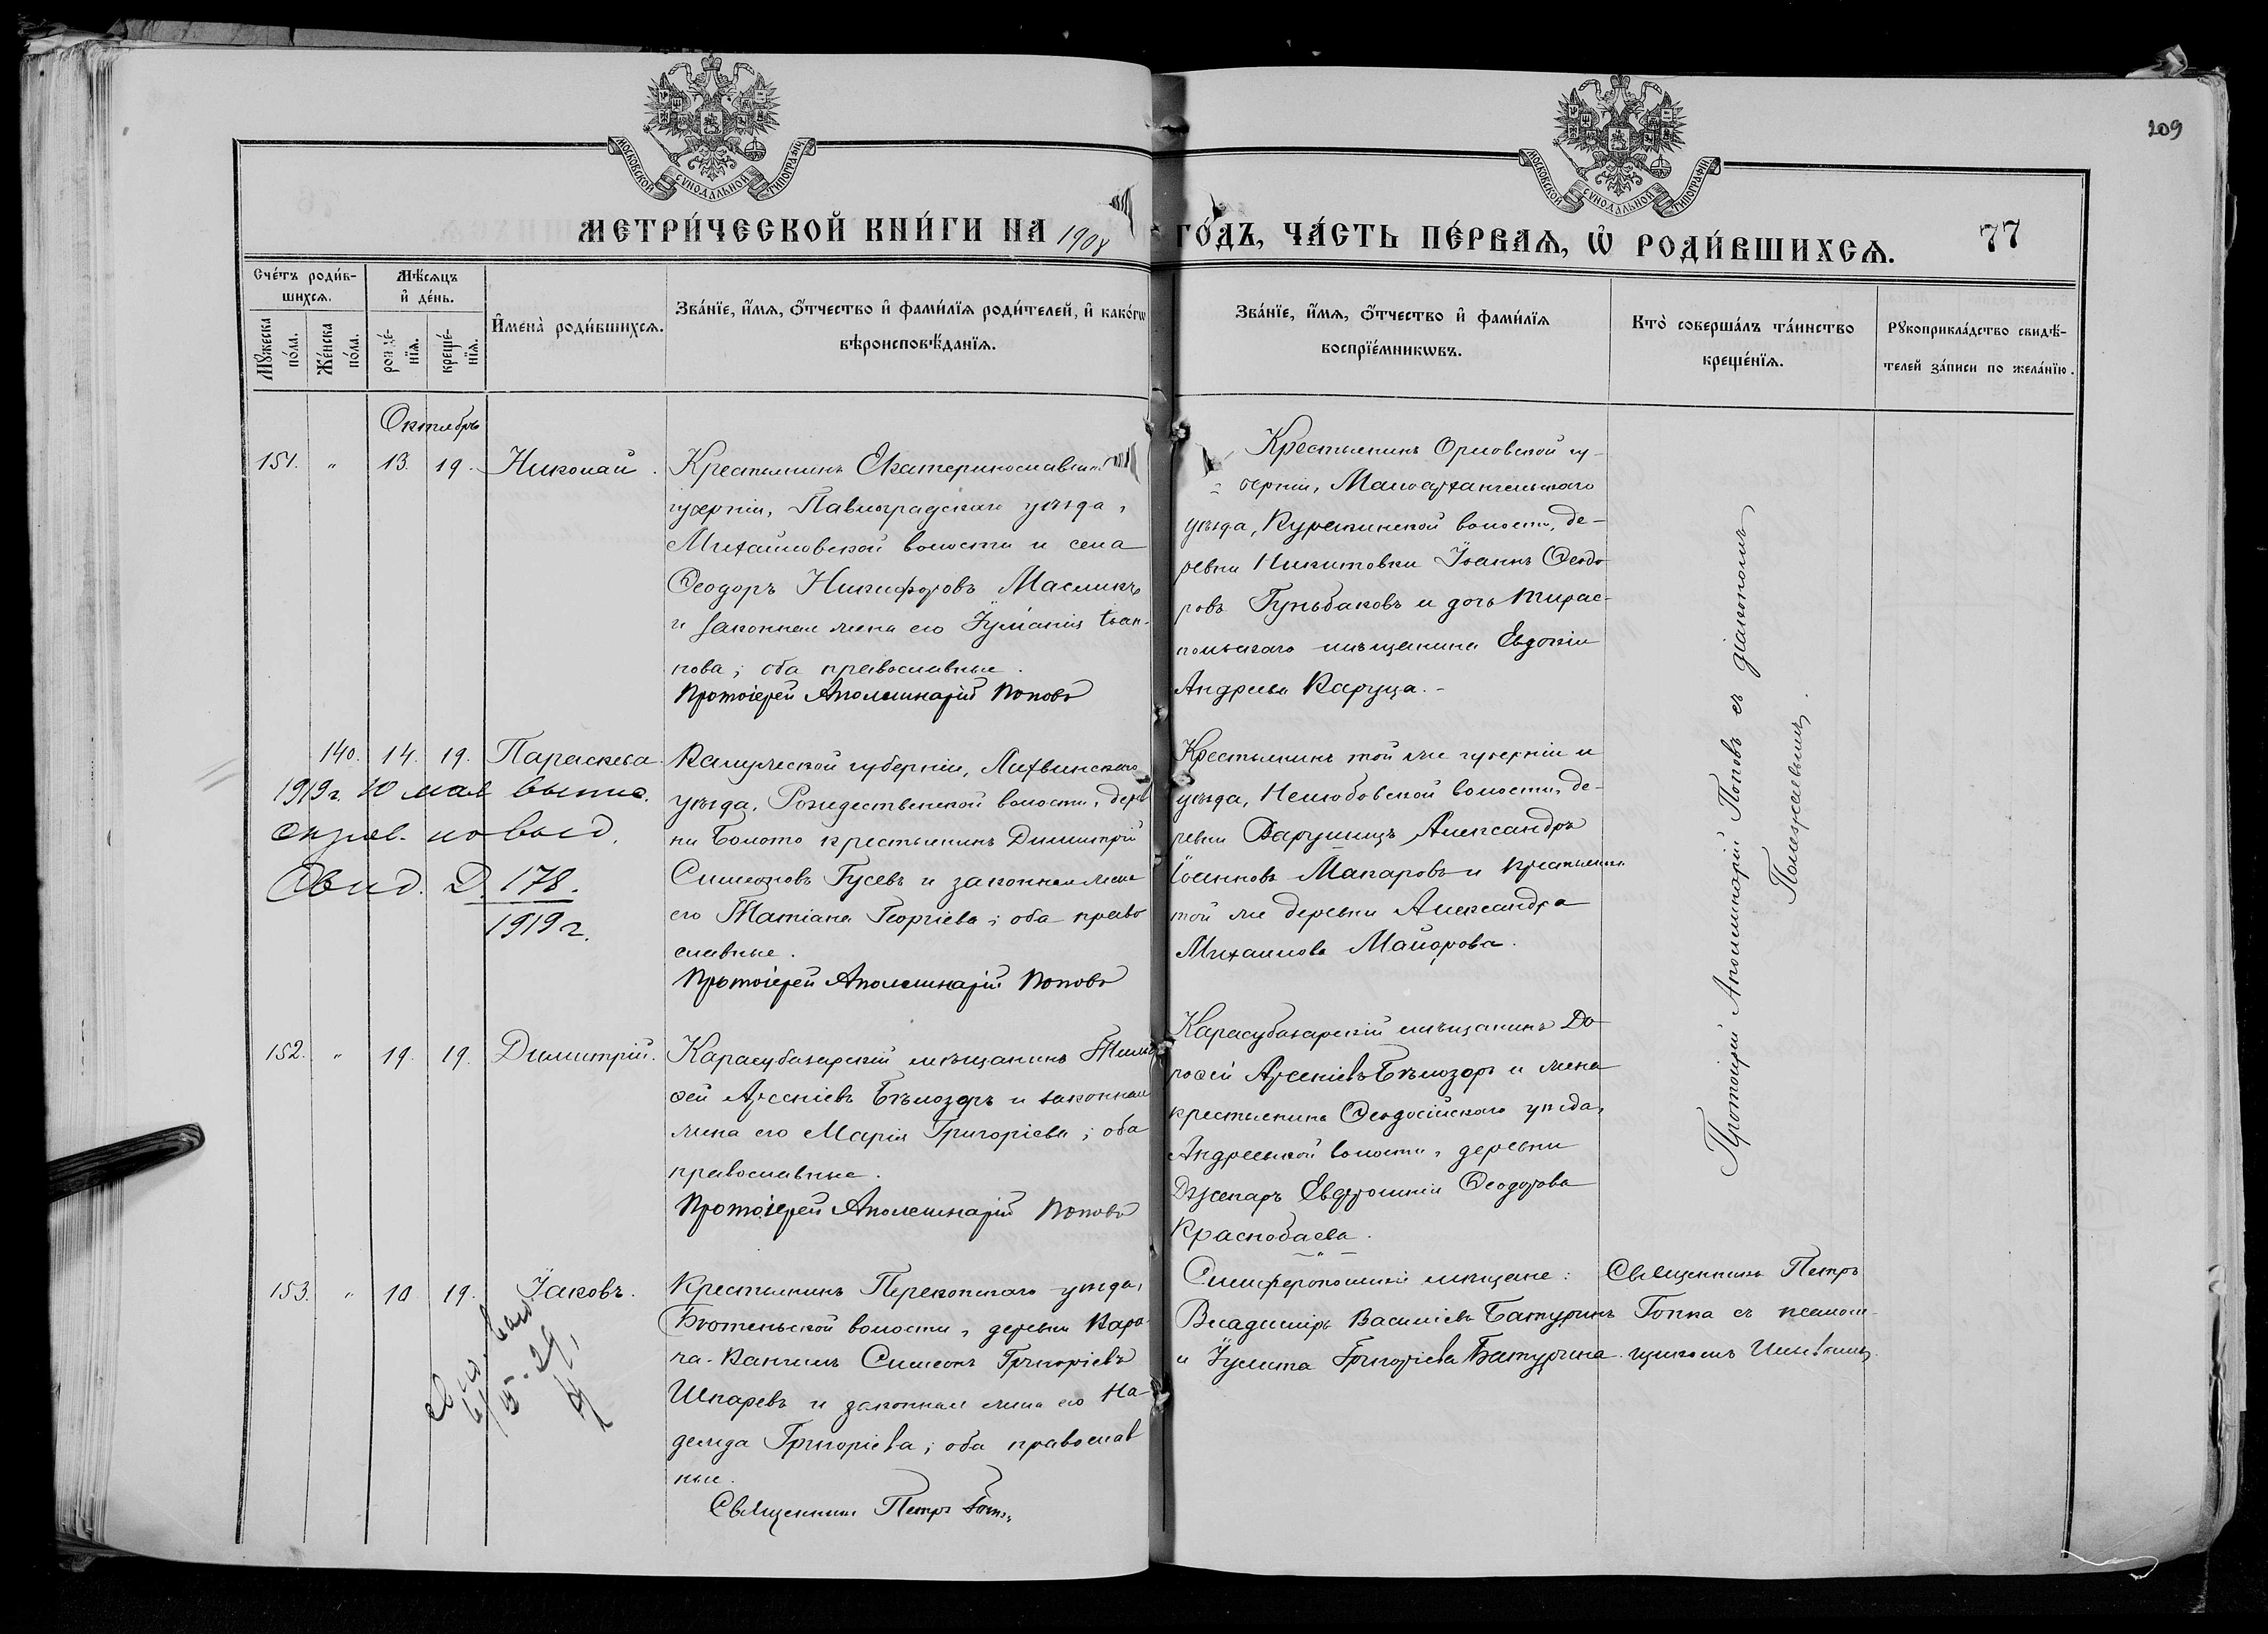 209
МОСКОВСКОЙ СУНОДАЛЬНОЙ ТИПОГРАФІИ
МОСКОВСКОЙ СУНОДАЛЬНОЙ ТИПОГРАФІИ
МЕТРИ́ЧЕСКОЙ КНИ́ГИ НА 1908 ГО́ДЪ, ЧА́СТЬ ПЕ́РВАЯ, Ѡ РОДИ́ВШИХСЯ. 77
Сче́тъ роди́вшихся.
Мѹ́жеска по́ла.
Же́нска по́ла.
Мѣ́сяцъ и де́нь.
рожде́нїя.
креще́нїя.
Имена̀ роди́вшихся.
Зва́нїе, и́мя, о́тчество и фами́лїя роди́телей, и како́гѡ
вѣроисповѣ́данїя.
Зва́нїе, и́мя, о́тчество и фами́лїя
воспрїе́мникѡвъ.
Кто̀ соверша́лъ та́инство
креще́нїя.
Рꙋкоприкла́дство свидѣ́-
телей за́писи по жела́нїю.
Октябрь
151. " 13. 19. Николай.
Крестьянинъ Екатеринославской
губерніи, Павлоградскаго уѣзда,
Михайловской волости и села
Ѳеодоръ Никифоровъ Масликъ
и законная жена его Іуліанія Іоан-
нова; оба православные.
Протоіерей Аполлинарій Поповъ
Крестьянинъ Орловской гу-
берніи, Малоархангельскаго
уѣзда, Куракинской волости, де-
ревни Никитовки Іоаннъ Ѳеодо-
ровъ Гуньбаковъ и дочь тирас-
польскаго мѣщанина Евдокія
Андреева Каруца.
140. 14. 19. Параскева.
1919 г. 10 мая выпис.
Свид. 178.
1919 г.
Калужской губерніи, Лихвинскаго
уѣзда, Рождественской волости, дерев
ни Болото крестьянинъ Димитрій
Симеоновъ Гусевъ и законная жена
его Татіана Георгіева; оба право
славные.
Протоіерей Аполлинарій Поповъ
Крестьянинъ той же губерніи и
уѣзда, Нелюбовской волости, де-
ревни Варушицъ Александръ
Іоанновъ Макаровъ и крестьянка
той же деревни Александра
Михаилова Майорова.
152. " 19. 19. Димитрій.
Карасубазарскій мѣщанинъ Тимо
ѳей Арсеніевъ Бѣлозоръ и законная
жена его Марія Григоріева; оба
православные.
Протоіерей Аполлинарій Поповъ
Карасубазарскій мѣщанинъ До-
роѳей Арсеніевъ Бѣлозоръ и жена
крестьянина Ѳеодосійскаго уѣзда,
Андреевской волости, деревни
Джепаръ Евфросинія Ѳеодорова
Краснобаева.
Протоіерей Аполлинарій Поповъ съ діакономъ
153. " 10 19. Іаковъ.
Крестьянинъ Перекопскаго уѣзда,
Бютеньской волости, деревни Кара-
ча-Кангилъ Симеонъ Григоріевъ
Шкаревъ и законная жена его На-
дежда Григоріева; оба православ
ные.
Священникъ Петръ
Симферопольскіе мѣщане:
Владиміръ Василіевъ Батуринъ
и Іулита Григоріева Батурина.
Священникъ Петръ
Гопка съ псалом-
щикомъ